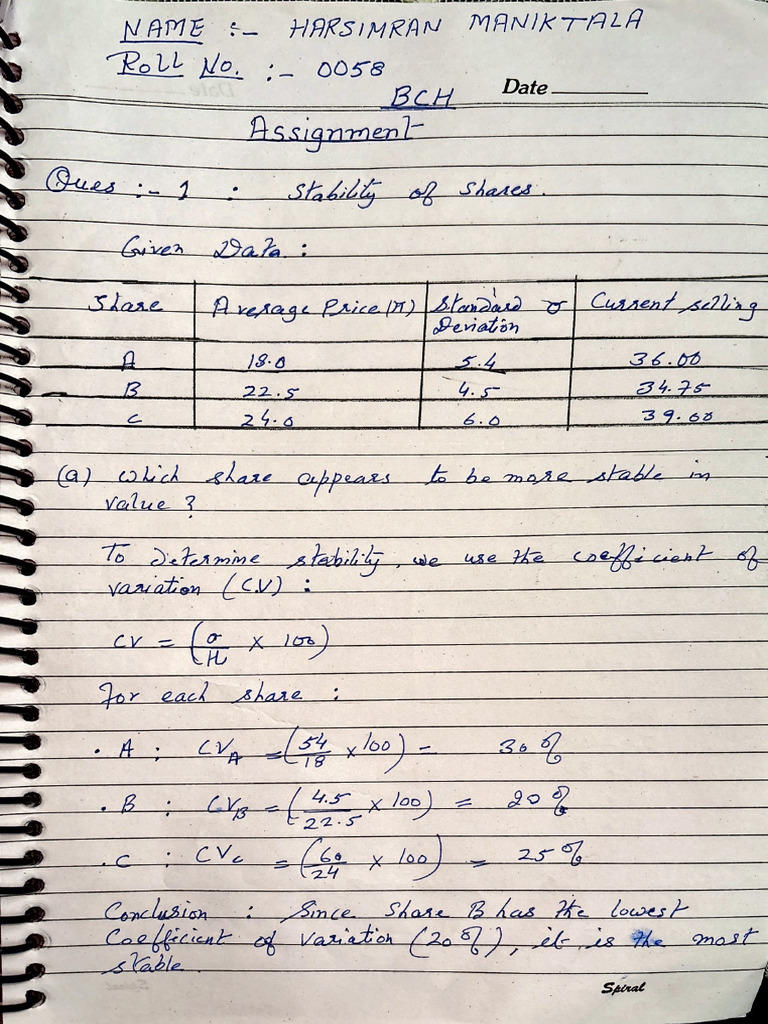 NAME :- HARSIMRAN MANIKTALA
ROLL NO. :- 0058
BCH Date
Assignment
Ques :- 1 : Stability of Shares.
Given Data :
Share Average Price (π) Standard σ Current selling
Deviation
A 18.0 5.4 36.00
B 22.5 4.5 34.75
C 24.0 6.0 39.00
(a) which share appears to be more stable in
value ?
To determine stability, we use the coefficient of
variation (C.V) :
CV = (σ/H × 100)
For each share :
• A : CVA = (54/18 × 100) = 30 %
• B : CVB = (4.5/22.5 × 100) = 20 %
• C : CVc = (60/24 × 100) = 25 %
Conclusion : Since Share B has the lowest
Coefficient of variation (20 %), it is the most
stable.
Spiral